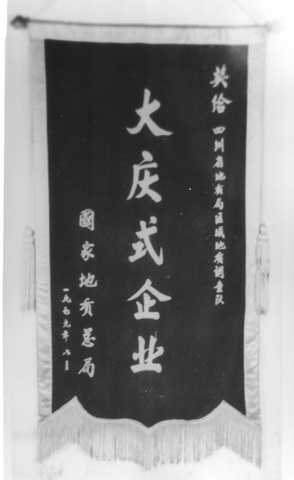 奖给 四川省地质局区域地质调查队
大庆式企业
國家地质总局
一九七九年 月